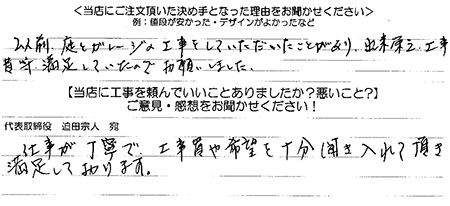 <当店にご注文頂いた決め手となった理由をお聞かせください>
例：値段が安かった・デザインがよかったなど
以前、庭とガレージの工事をしていただいたことがあり、出来栄え、工事
費等、満足していたのでお願いしました。
【当店に工事を頼んでいいいことありましたか？悪いこと？】
ご意見・感想をお聞かせください！
代表取締役　迫田宗人　宛
仕事が丁寧で、工事買や希望を十分聞き入れて頂き
満足しております。